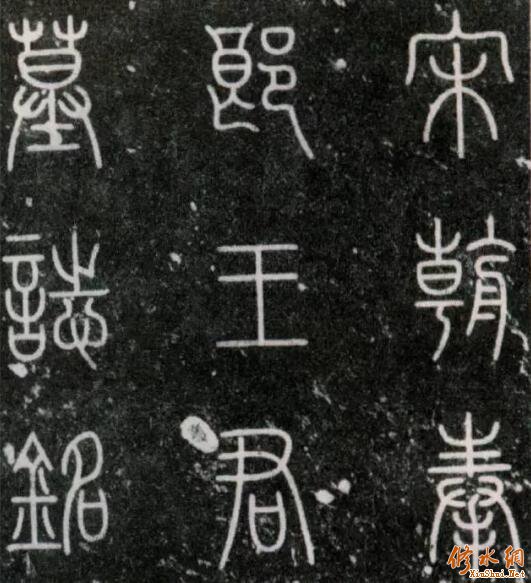 宋朝奉
郎王君
墓誌銘
修水網
XiuShui.Net